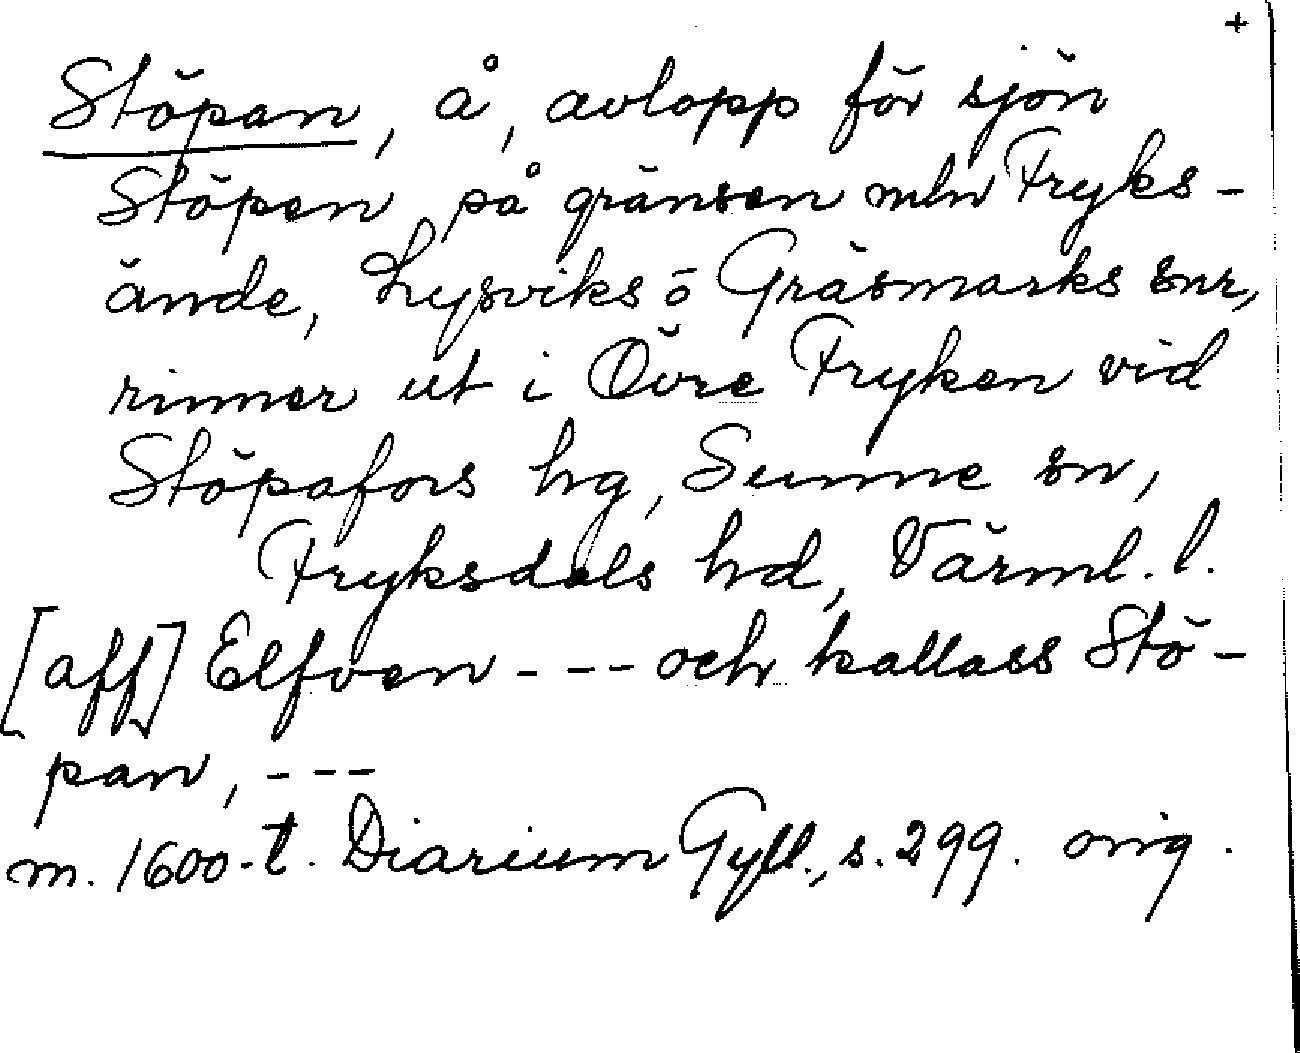 +
Stöpan, å, avlopp för sjön
Stöpen på gränsen mln Fryks-
ände, Lysviks o Gräsmarks snr,
rinner ut i Övre Fryken vid
Stöpafors hg, Sunne sn,
Fryksdals hd, Värml. l.
[aff] Elfven --- och kallass Stö-
pan, ---
m. 1600-t. Diarium Gyll., s. 299. orig.